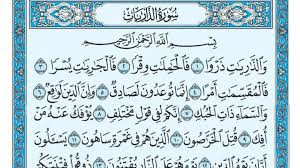 سُورَةُ الذَّارِيَاتِ
بِسْمِ اللَّهِ الرَّحْمَٰنِ الرَّحِيمِ
وَالذَّارِيَاتِ ذَرْوًا ١ فَالْحَامِلَاتِ وِقْرًا ٢ فَالْجَارِيَاتِ يُسْرًا ٣
فَالْمُقَسِّمَاتِ أَمْرًا ٤ إِنَّمَا تُوعَدُونَ لَصَادِقٌ ٥ وَإِنَّ الدِّينَ لَوَاقِعٌ ٦
وَالسَّمَاءِ ذَاتِ الْحُبُكِ ٧ إِنَّكُمْ لَفِي قَوْلٍ مُخْتَلِفٍ ٨ يُؤْفَكُ عَنْهُ مَنْ
أُفِكَ ٩ قُتِلَ الْخَرَّاصُونَ ١٠ الَّذِينَ هُمْ فِي غَمْرَةٍ سَاهُونَ ١١ يَسْأَلُونَ